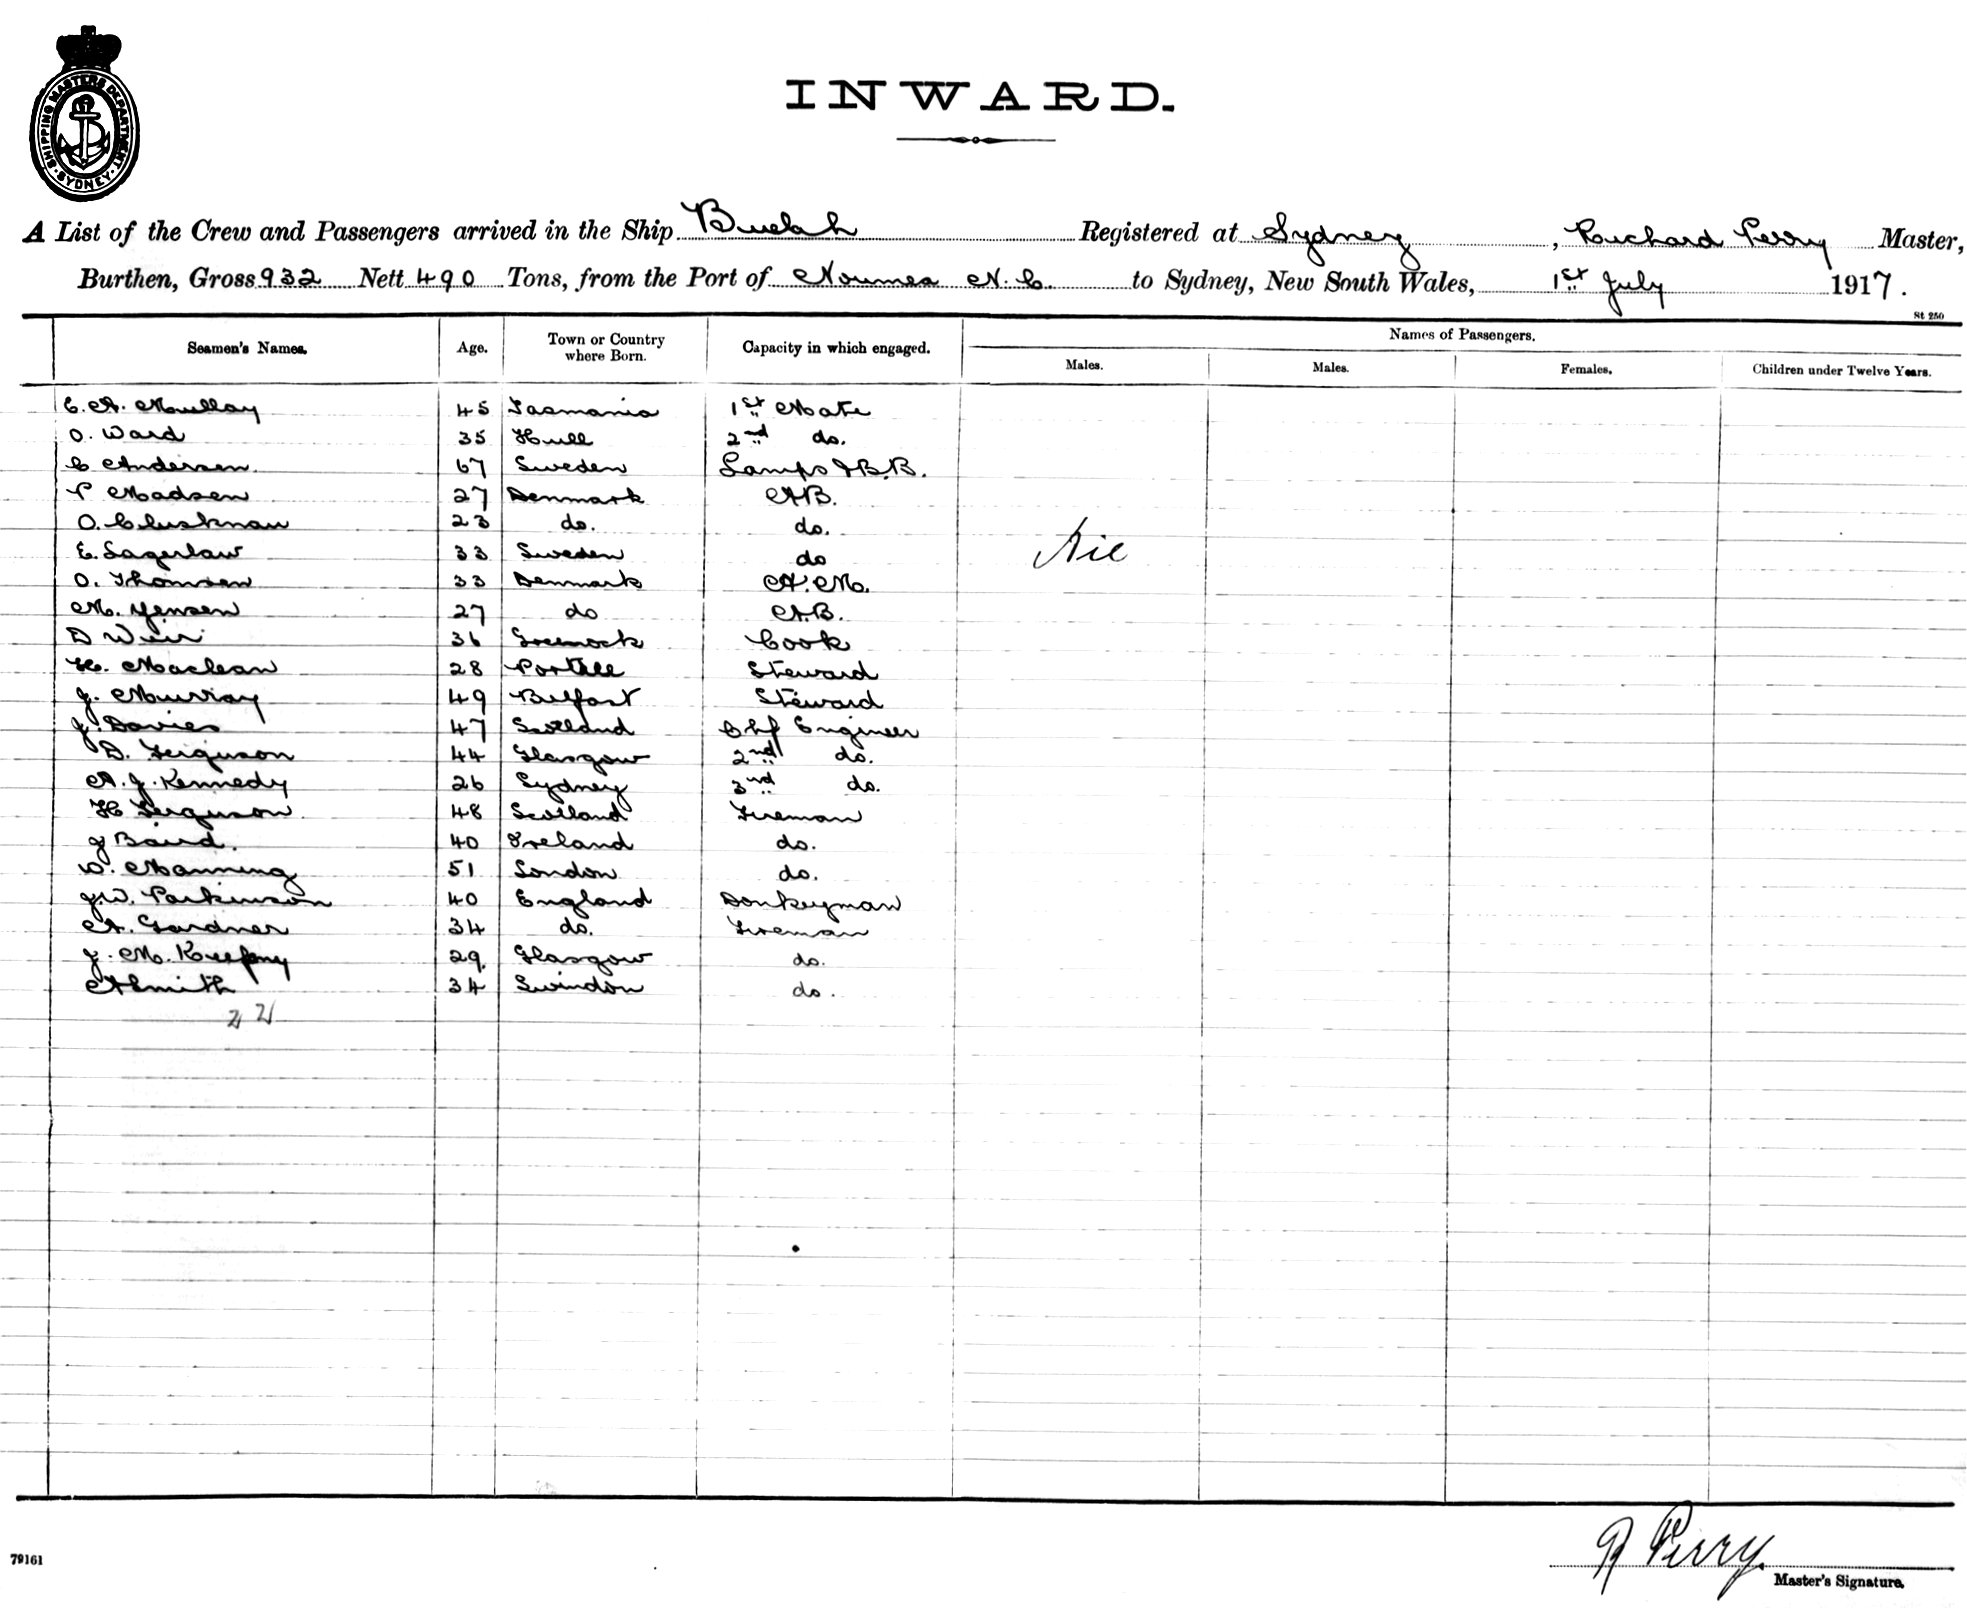 SHIPPING MASTERS DEPARTMENT
SYDNEY
INWARD.
A List of the Crew and Passengers arrived in the Ship Registered at Sydney, Richard Perry Master,
Burthen, Gross 932 Nett 490 Tons, from the Port of Noumea N.C. to Sydney, New South Wales, 1st July 1917.
St 250
Seamen's Names. Age. Town or Country where Born. Capacity in which engaged. Names of Passengers.
Males. Males. Females. Children under Twelve Years.
C. A. Mullay 45 Tasmania 1st Mate
O. Ward 35 Hull 2nd do.
C Andersen 67 Sweden Lamps & B.B.
P Madsen 27 Denmark A.B.
O. 23 do. do.
E. Lagerlaw 33 Sweden do Nil
O. Thomsen 33 Denmark A.M.
M. Yensen 27 do A.B.
D Weir 36 Greenock Cook
H. Maclean 28 Steward
J. Murray 49 Belfast Steward
J. Davies 47 Scotland Chf Engineer
D. Ferguson 44 Glasgow 2nd do.
A. J. Kennedy 26 Sydney 3rd do.
H Ferguson 48 Scotland Fireman
J Baird. 40 Ireland do.
W. Manning 51 London do.
J.W. Parkinson 40 England Donkeyman
A. Gardner 34 do. Fireman
J. M. 29 Glasgow do.
A Smith 34 Swindon do.
21 21
R Perry.
79161 Master's Signature.